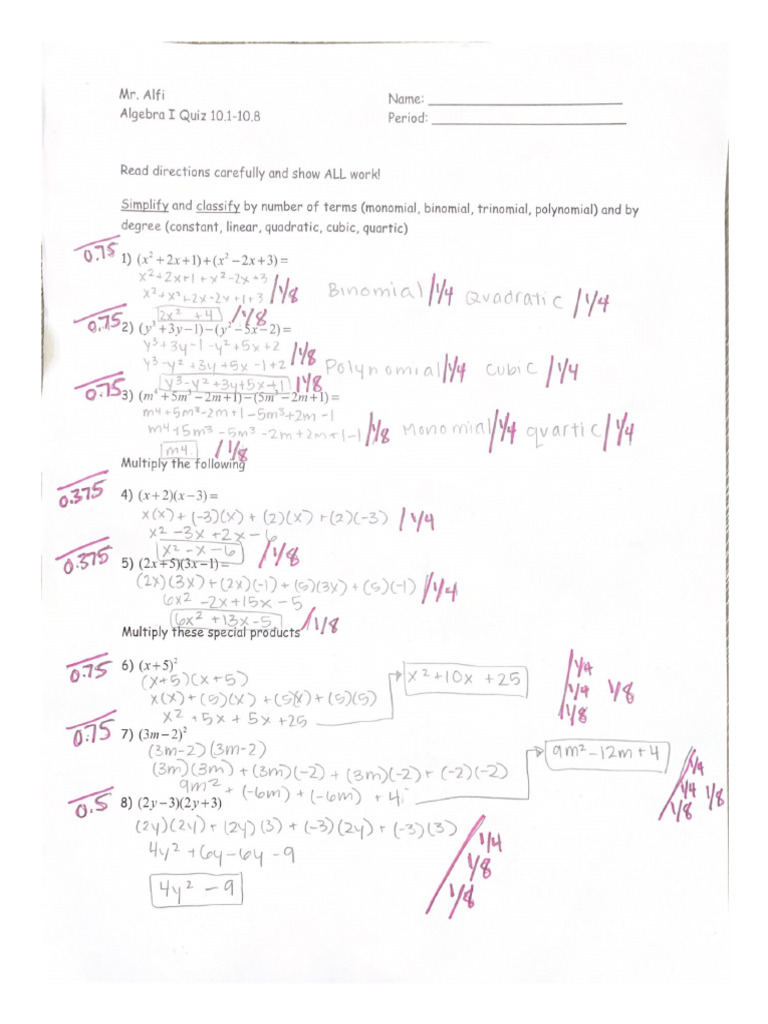 Mr. Alfi
Name:
Algebra I Quiz 10.1-10.8
Period:
Read directions carefully and show ALL work!
Simplify and classify by number of terms (monomial, binomial, trinomial, polynomial) and by
degree (constant, linear, quadratic, cubic, quartic)
0.75
1) (x² + 2x + 1) + (x² − 2x + 3) =
x² + 2x + 1 + x² - 2x + 3
x² + x² + 2x - 2x + 1 + 3 /1/8 Binomial /1/4 Quadratic /1/4
2x² + 4 /1/8
0.75
2) (y³ + 3y − 1) − (y² − 5x − 2) =
y³ + 3y - 1 - y² + 5x + 2
y³ - y² + 3y + 5x - 1 + 2 /1/8 Polynomial /1/4 cubic /1/4
y³ - y² + 3y + 5x + 1 /1/8
0.75
3) (m⁴ + 5m³ − 2m + 1) − (5m³ − 2m + 1) =
m4 + 5m³ - 2m + 1 - 5m³ + 2m - 1
m4 + 5m³ - 5m³ - 2m + 2m + 1 - 1 /1/8 Monomial /1/4 quartic /1/4
m4. /1/8
Multiply the following
0.375
4) (x + 2)(x − 3) =
x(x) + (-3)(x) + (2)(x) + (2)(-3) /1/4
x² - 3x + 2x - 6
x² - x - 6 /1/8
0.375
5) (2x + 5)(3x − 1) =
(2x)(3x) + (2x)(-1) + (5)(3x) + (5)(-1) /1/4
6x² - 2x + 15x - 5
6x² + 13x - 5 /1/8
Multiply these special products
0.75
6) (x + 5)²
(x+5)(x+5)
x(x) + (5)(x) + (5)(x) + (5)(5)
x² + 5x + 5x + 25
x² + 10x + 25
1/4
1/4 1/8
1/8
0.75
7) (3m − 2)²
(3m-2)(3m-2)
(3m)(3m) + (3m)(-2) + (3m)(-2) + (-2)(-2)
9m² + (-6m) + (-6m) + 4
9m² - 12m + 4
1/4
1/4 1/8
1/8
0.5
8) (2y − 3)(2y + 3)
(2y)(2y) + (2y)(3) + (-3)(2y) + (-3)(3)
4y² + 6y - 6y - 9
4y² - 9
1/4
1/8
1/8